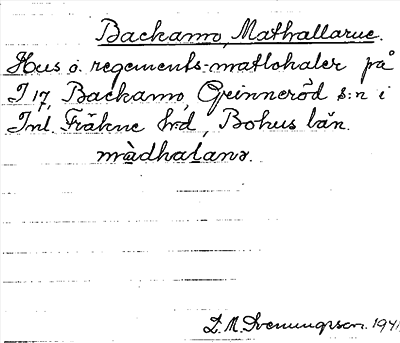 Backamo, Mathallarne.
Hus o. regements-matlokaler på
I 17, Backamo, Grinneröd s:n i
Inl. Fräkne hrd, Bohus län.
màdhalanɒ.
L. M. Svenungsson. 1941